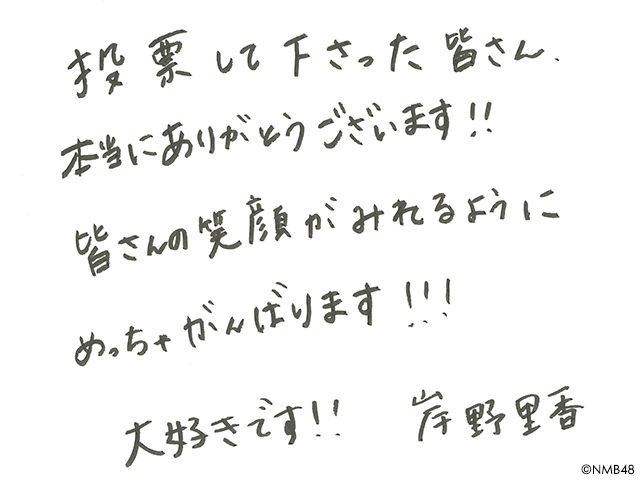 投票して下さった皆さん、
本当にありがとうございます!!
皆さんの笑顔がみれるように
めっちゃがんばります!!!
大好きです!! 岸野里香
©NMB48